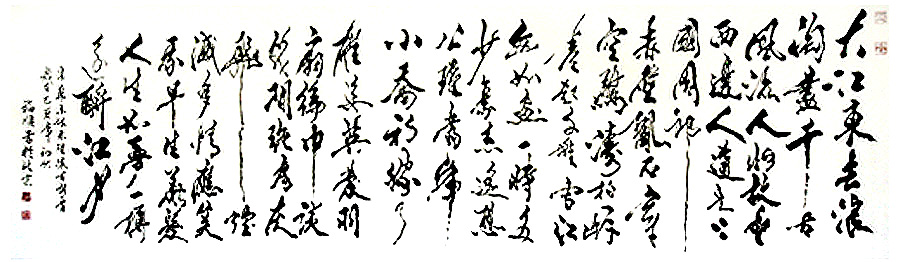 大江東去浪
淘盡千古
風流人物故壘
西邊人道是三
國周郎
赤壁亂石穿
空驚濤拍岸
卷起千堆雪江
山如畫一時多
少豪杰遙想
公瑾當年
小喬初嫁了
雄姿英發羽
扇綸巾談
笑間強虜灰
飛煙
滅多情應笑
我早生華髮
人生如夢一樽
還酹江月